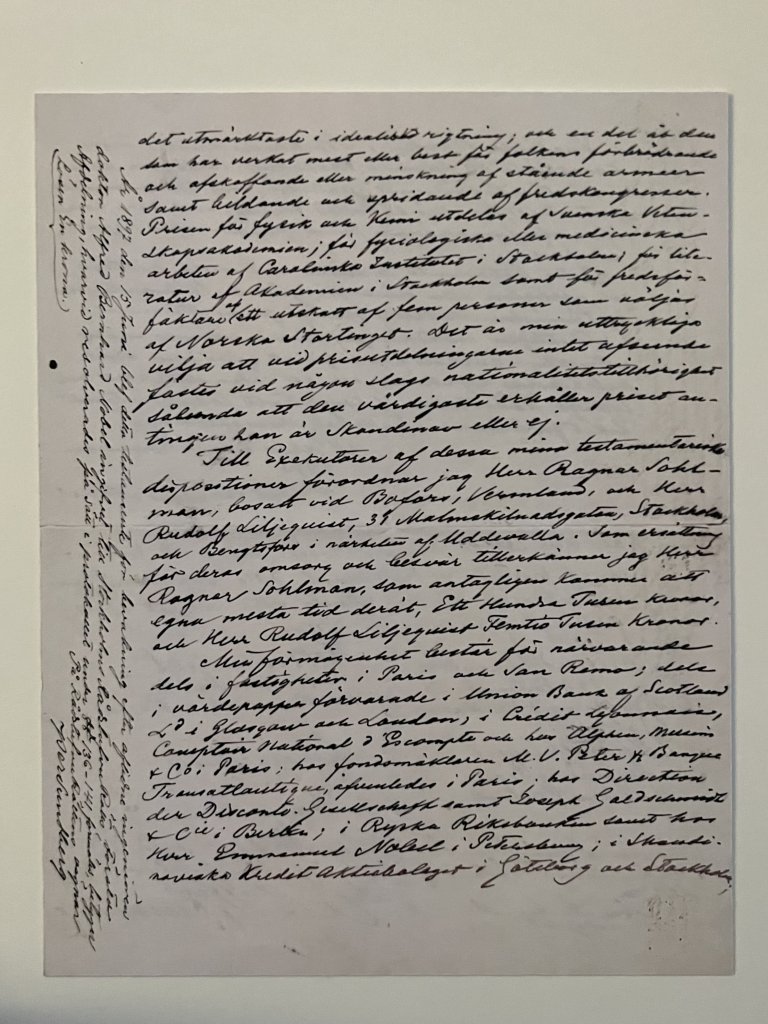 det utmärktaste i idealisk rigtning; och en del åt den
som har verkat mest eller best för folkens förbrödrande
och afskaffande eller minskning af stående armeer
samt bildande och spridande af fredskongresser.
Prisen för fysik och kemi utdelas af Svenska Veten-
skapsakademien; för fysiologiska eller medicinska
arbeten af Carolinska Institutet i Stockholm; för lite-
ratur af Akademien i Stockholm samt för fredsför-
fäktare af ett utskott af fem personer som väljas
af Norska Stortinget. Det är min uttryckliga
vilja att vid prisutdelningarne intet afseende
fästes vid någon slags nationalitetstillhörighet
sålunda att den värdigaste erhåller priset an-
tingen han är Skandinav eller ej.
Till Exekutorer af dessa mina testamentariska
dispositioner förordnar jag Herr Ragnar Sohl-
man, bosatt vid Bofors, Vermland, och Herr
Rudolf Liljequist, 31 Malmskilnadsgatan, Stockholm,
och Bengtsfors i närheten af Uddevalla. Som ersättning
för deras omsorg och besvär tillerkänner jag Herr
Ragnar Sohlman, som antagligen kommer att
egna mesta tid deråt, Ett Hundra Tusen Kronor,
och Herr Rudolf Liljequist Femtio Tusen Kronor.
Min förmögenhet består för närvarande
dels i fastigheter i Paris och San Remo; dels
i värdepapper förvarade i Union Bank of Scotland
Ld i Glasgow och London; i Crédit Lyonnais,
Comptoir National d'Escompte och hos Alphen, Messin
& Co i Paris; hos fondmäklaren M. V. Peter & Banque
Transatlantique, afvenledes i Paris; hos Direction
der Disconto Gesellschaft samt Joseph Goldschmidt
& Cie i Berlin; i Ryska Riksbanken samt hos
Herr Emmanuel Nobel i Petersburg; i Skandi-
naviska Kredit Aktiebolaget i Göteborg och Stockholm;
År 1897 den 15 Juni blef detta testamente för bevakning efter aflidne ingeniören
doktor Alfred Bernhard Nobel ingifvet till Stockholms Rådstufvu Rätts
Afdelning, hvarvid resolverades på sätt i protokollet under § 36-141
På Rådstufvu Rättens vägnar
Lösen En krona.